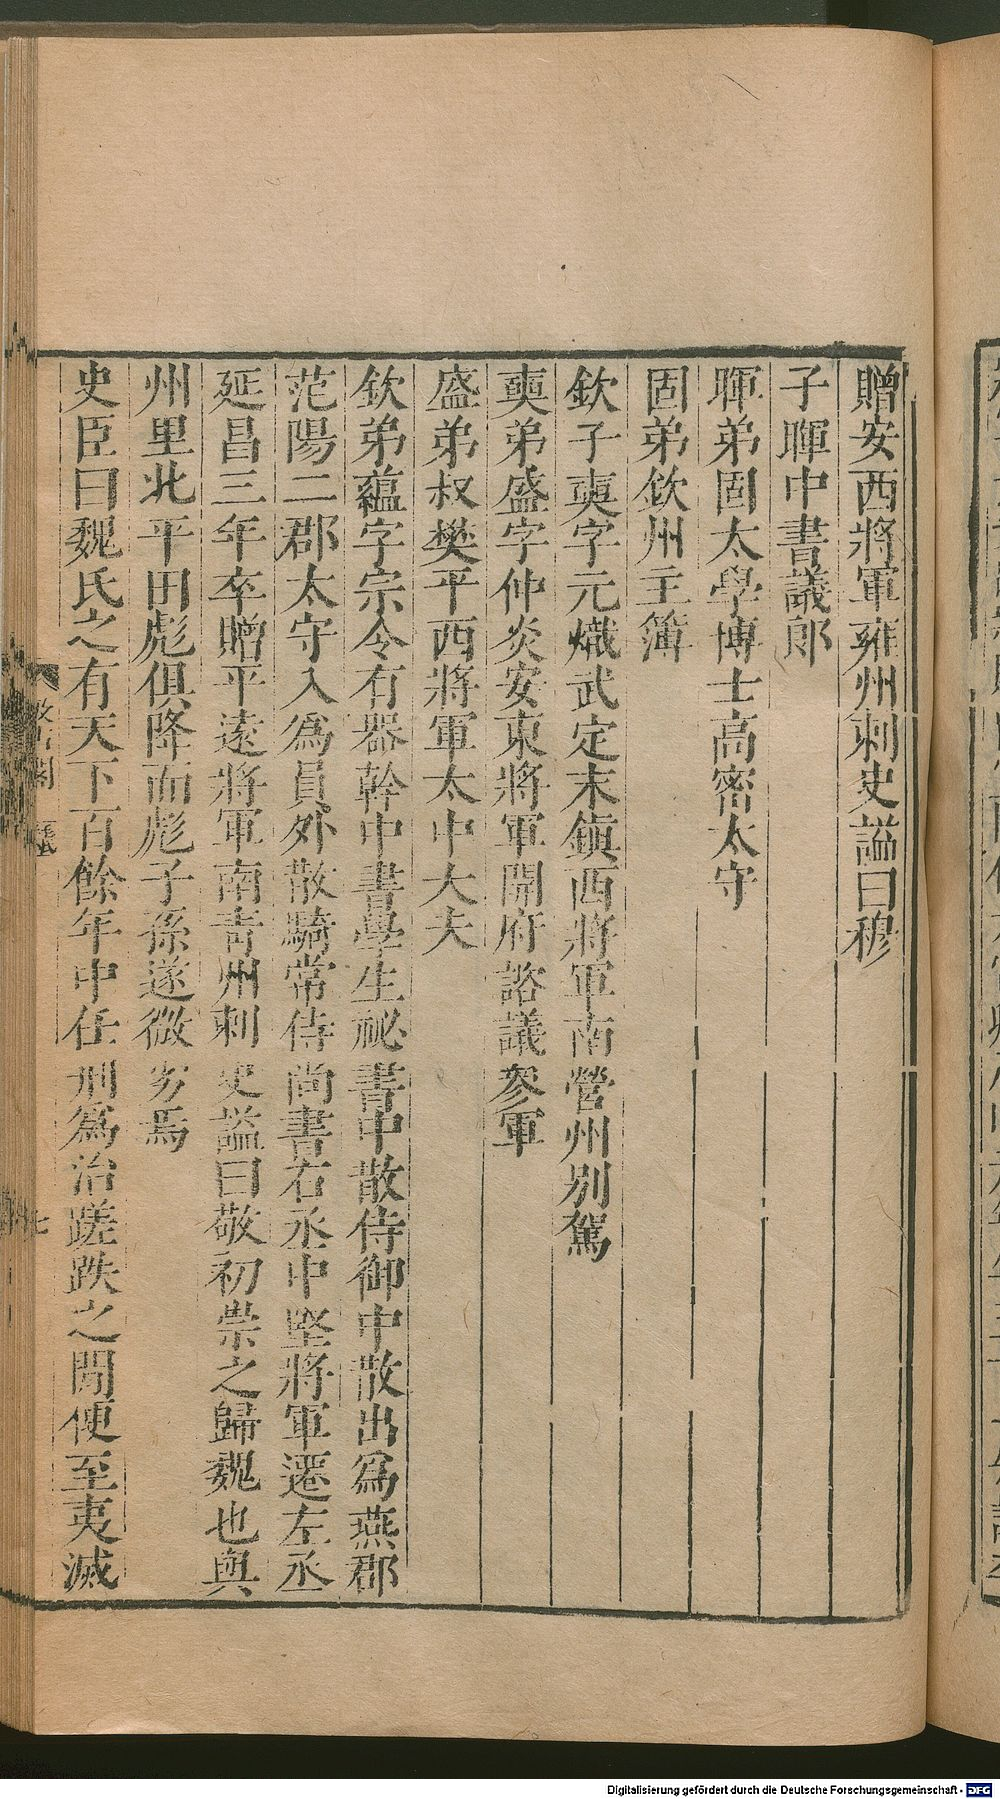 贈安西將軍雍州刺史謚曰穆
子暉中書議郎
暉弟固太學博士高密太守
固弟欽州主簿
欽子奭字元熾武定末鎭西將軍南營州別駕
奭弟盛字仲炎安東將軍開府諮議參軍
盛弟叔樊平西將軍太中大夫
欽弟蘊字宗令有器幹中書學生祕書中散侍御中散出爲燕郡
范陽二郡太守入爲員外散騎常侍尚書右丞中堅將軍遷左丞
延昌三年卒贈平遠將軍南靑州刺史謚曰敬初崇之歸魏也與
州里北平田彪俱降而彪子孫遂微劣焉
史臣曰魏氏之有天下百餘年中任刑爲治蹉跌之閒便至夷滅
七
Digitalisierung gefördert durch die Deutsche Forschungsgemeinschaft - DFG